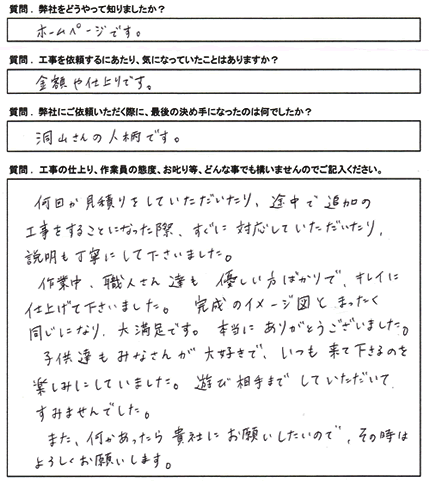 質問．弊社をどうやって知りましたか？
ホームページです。
質問．工事を依頼するにあたり、気になっていたことはありますか？
金額や仕上りです。
質問．弊社にご依頼いただく際に、最後の決め手になったのは何でしたか？
洞山さんの人柄です。
質問．工事の仕上り、作業員の態度、お叱り等、どんな事でも構いませんのでご記入ください。
何回か見積りをしていただいたり、途中で追加の
工事をすることになった際、すぐに対応していただいたり、
説明も丁寧にして下さいました。
作業中、職人さん達も優しい方ばかりで、キレイに
仕上げて下さいました。完成のイメージ図とまったく
同じになり、大満足です。本当にありがとうございました。
子供達もみなさんが大好きで、いつも来て下さるのを
楽しみにしていました。遊び相手までしていただいて
すみませんでした。
また、何かあったら貴社にお願いしたいので、その時は
よろしくお願いします。